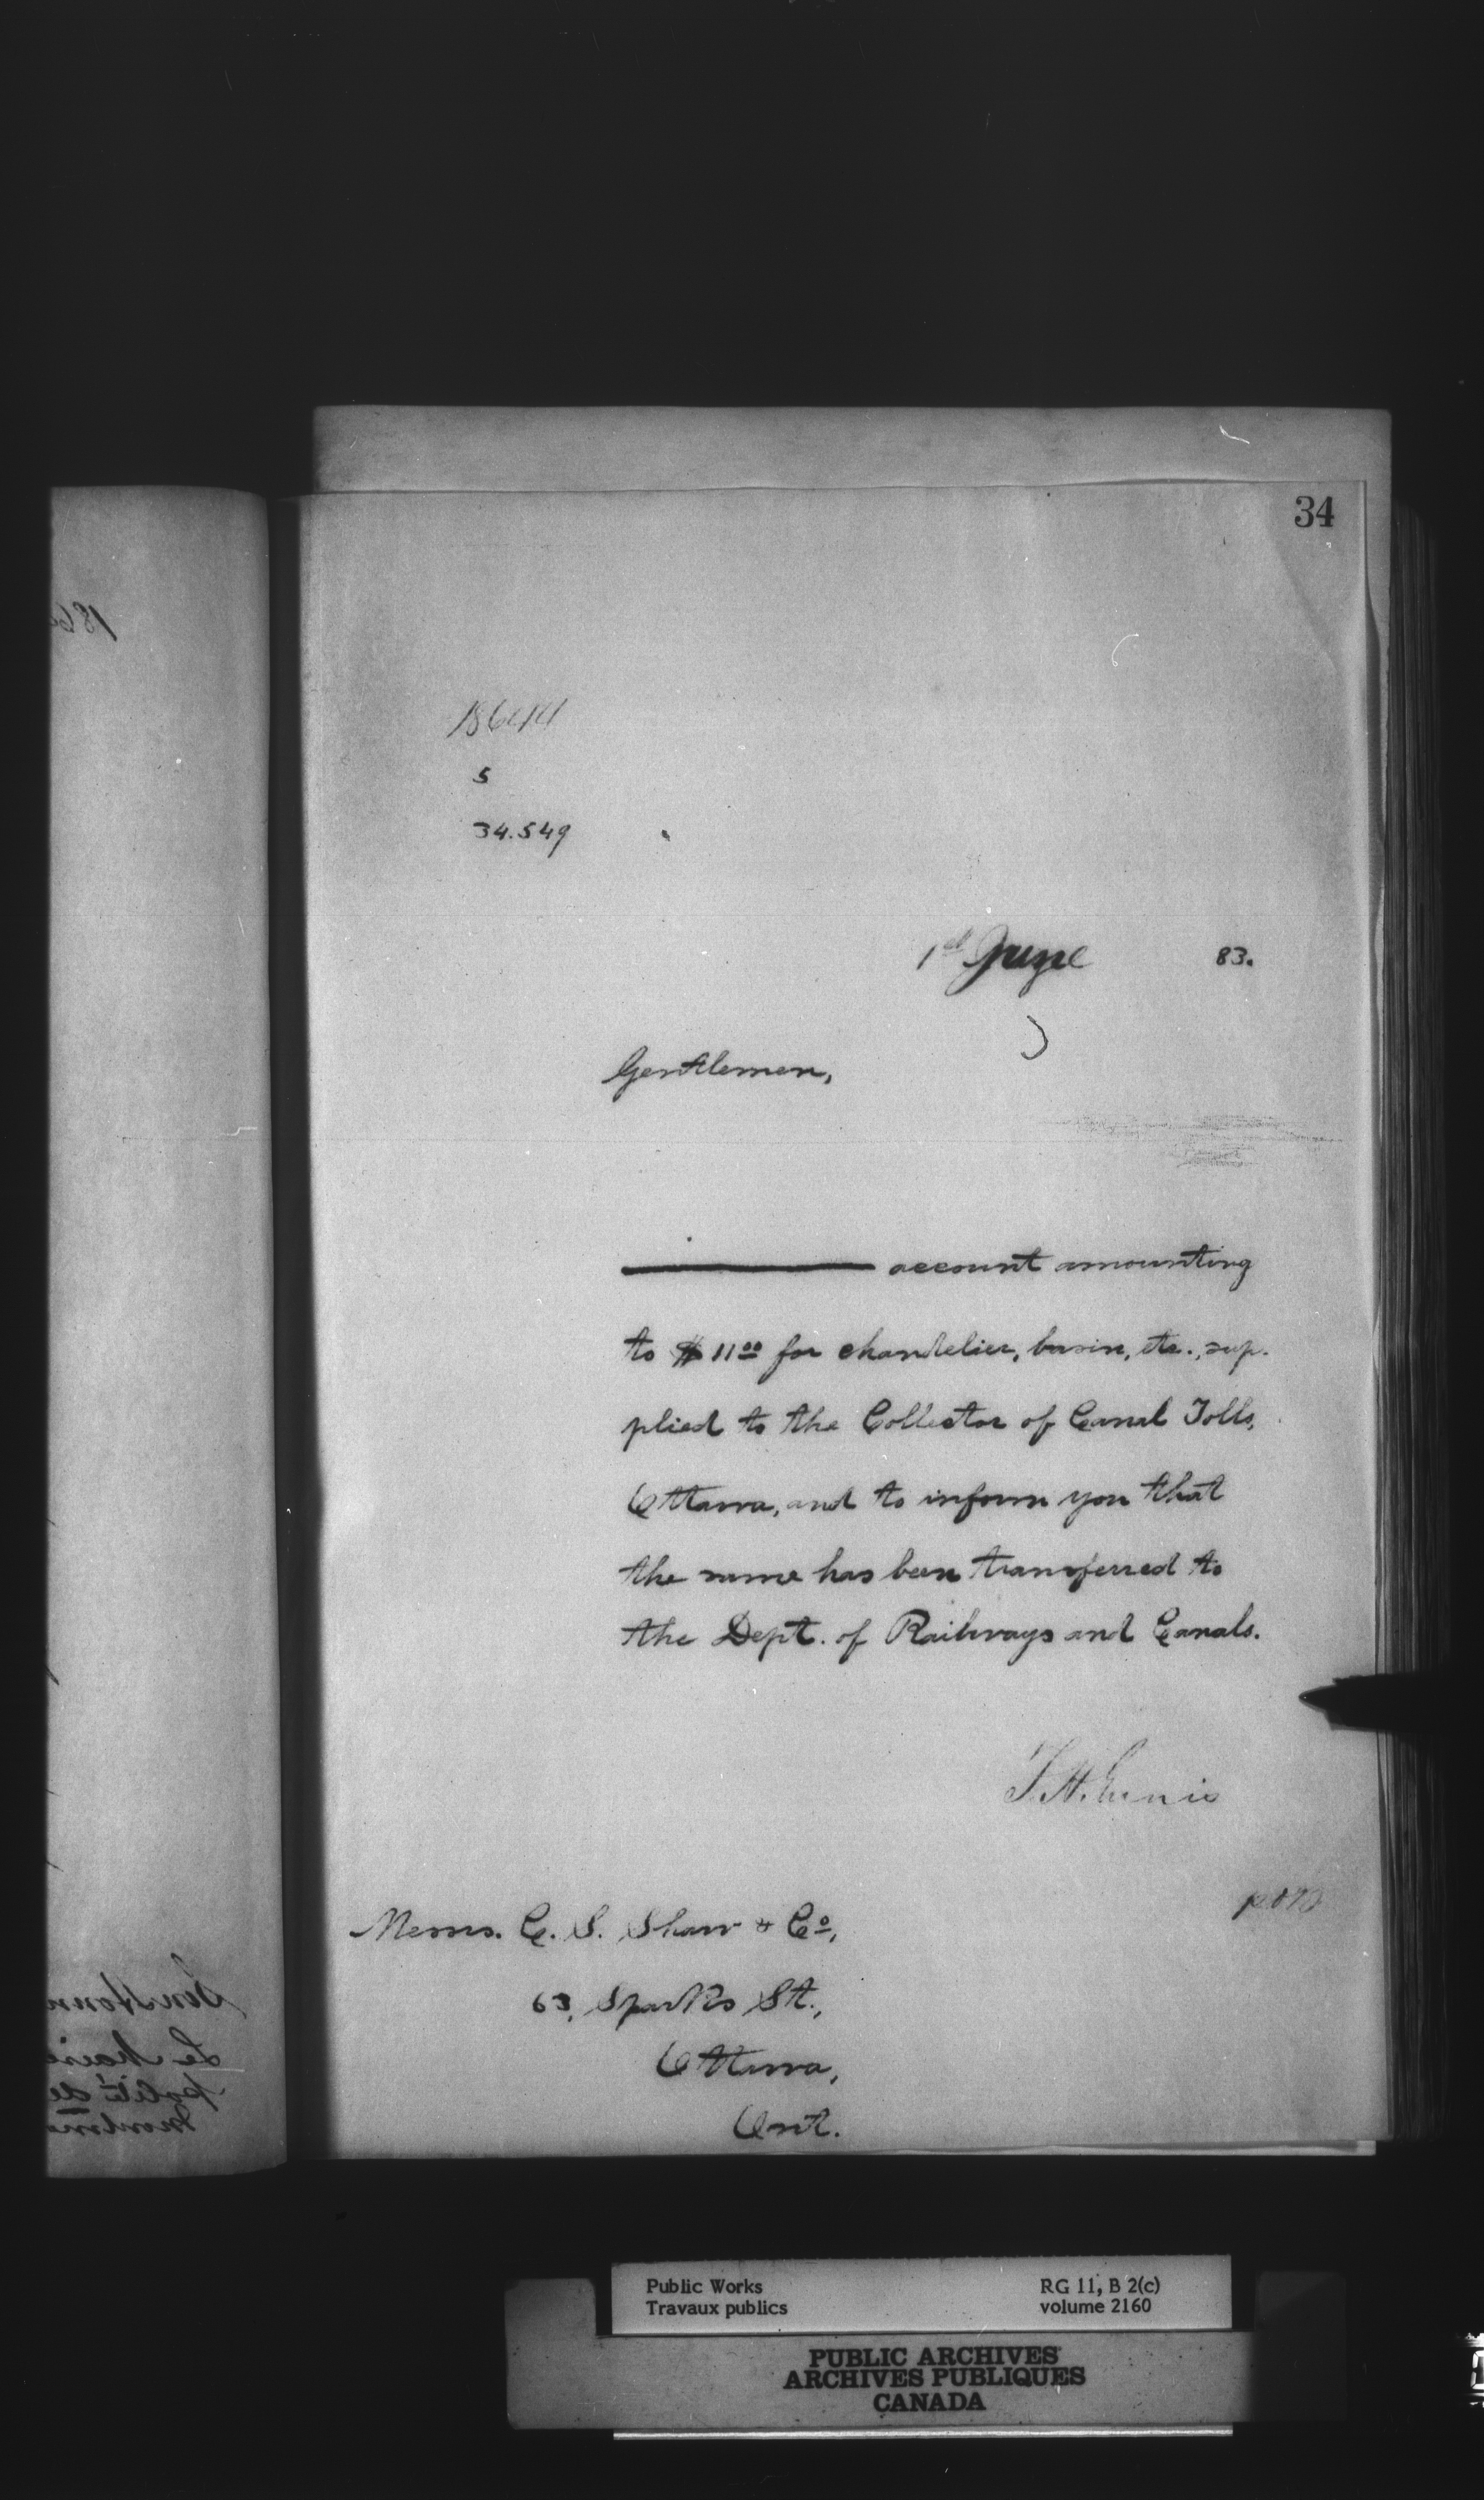 34
18644
5
34.549
1st June 83.
Gentlemen,
account amounting
to $11.00 for chandelier, basin, etc., sup-
plied to the Collector of Canal Tolls,
Ottawa, and to inform you that
the same has been transferred to
the Dept. of Railways and Canals.
F. H. Ennis
Messrs. C. S. Shaw & Co,
63, Sparks St.,
Ottawa,
Ont.
Public Works
Travaux publics
RG 11, B 2(c)
volume 2160
PUBLIC ARCHIVES
ARCHIVES PUBLIQUES
CANADA